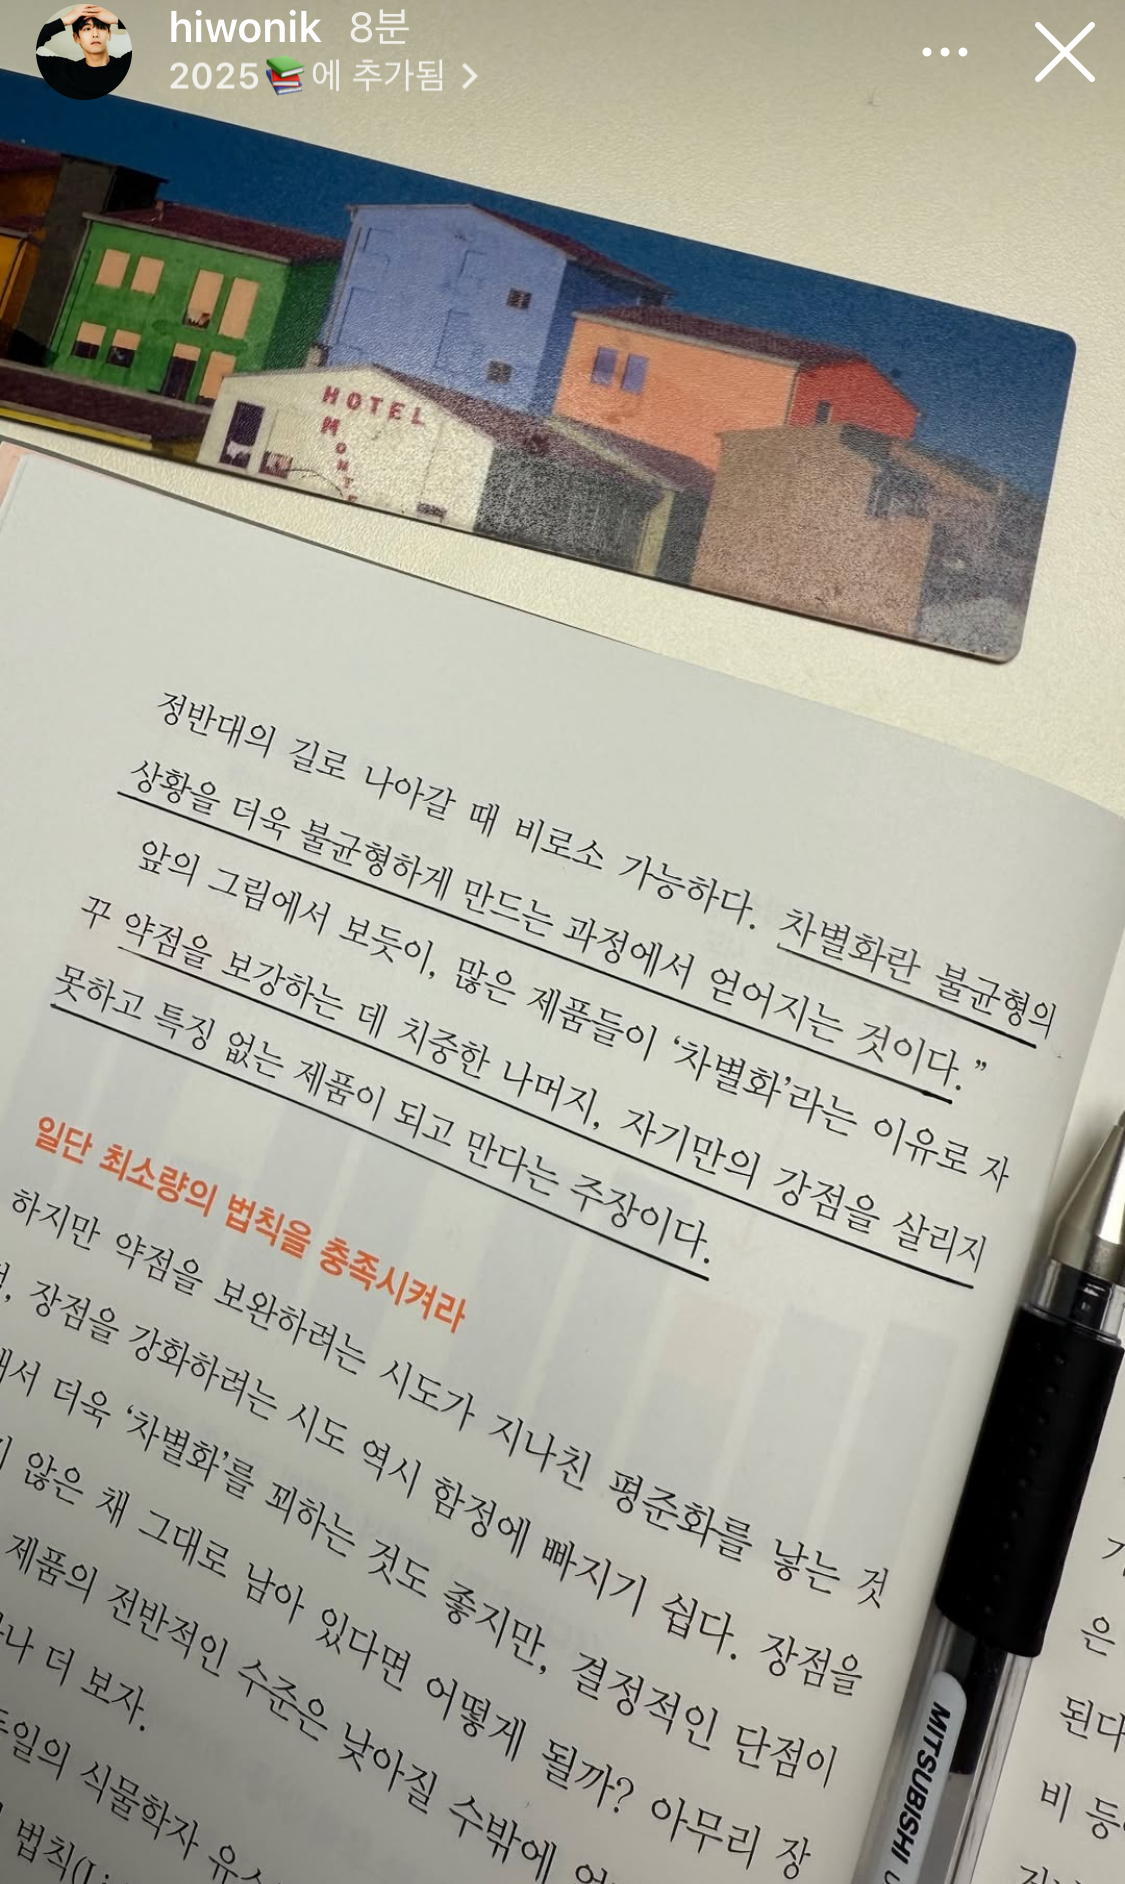 hiwonik 8분
2025📚에 추가됨 >
HOTEL
MONTE
정반대의 길로 나아갈 때 비로소 가능하다. 차별화란 불균형의
상황을 더욱 불균형하게 만드는 과정에서 얻어지는 것이다.”
앞의 그림에서 보듯이, 많은 제품들이 ‘차별화’라는 이유로 자
꾸 약점을 보강하는 데 치중한 나머지, 자기만의 강점을 살리지
못하고 특징 없는 제품이 되고 만다는 주장이다.
일단 최소량의 법칙을 충족시켜라
하지만 약점을 보완하려는 시도가 지나친 평준화를 낳는 것
, 장점을 강화하려는 시도 역시 함정에 빠지기 쉽다. 장점을
서 더욱 ‘차별화’를 꾀하는 것도 좋지만, 결정적인 단점이
않은 채 그대로 남아 있다면 어떻게 될까? 아무리 장
제품의 전반적인 수준은 낮아질 수밖에
더 보자.
식물학자
법칙(
은
된다
비
MITSUBISHI